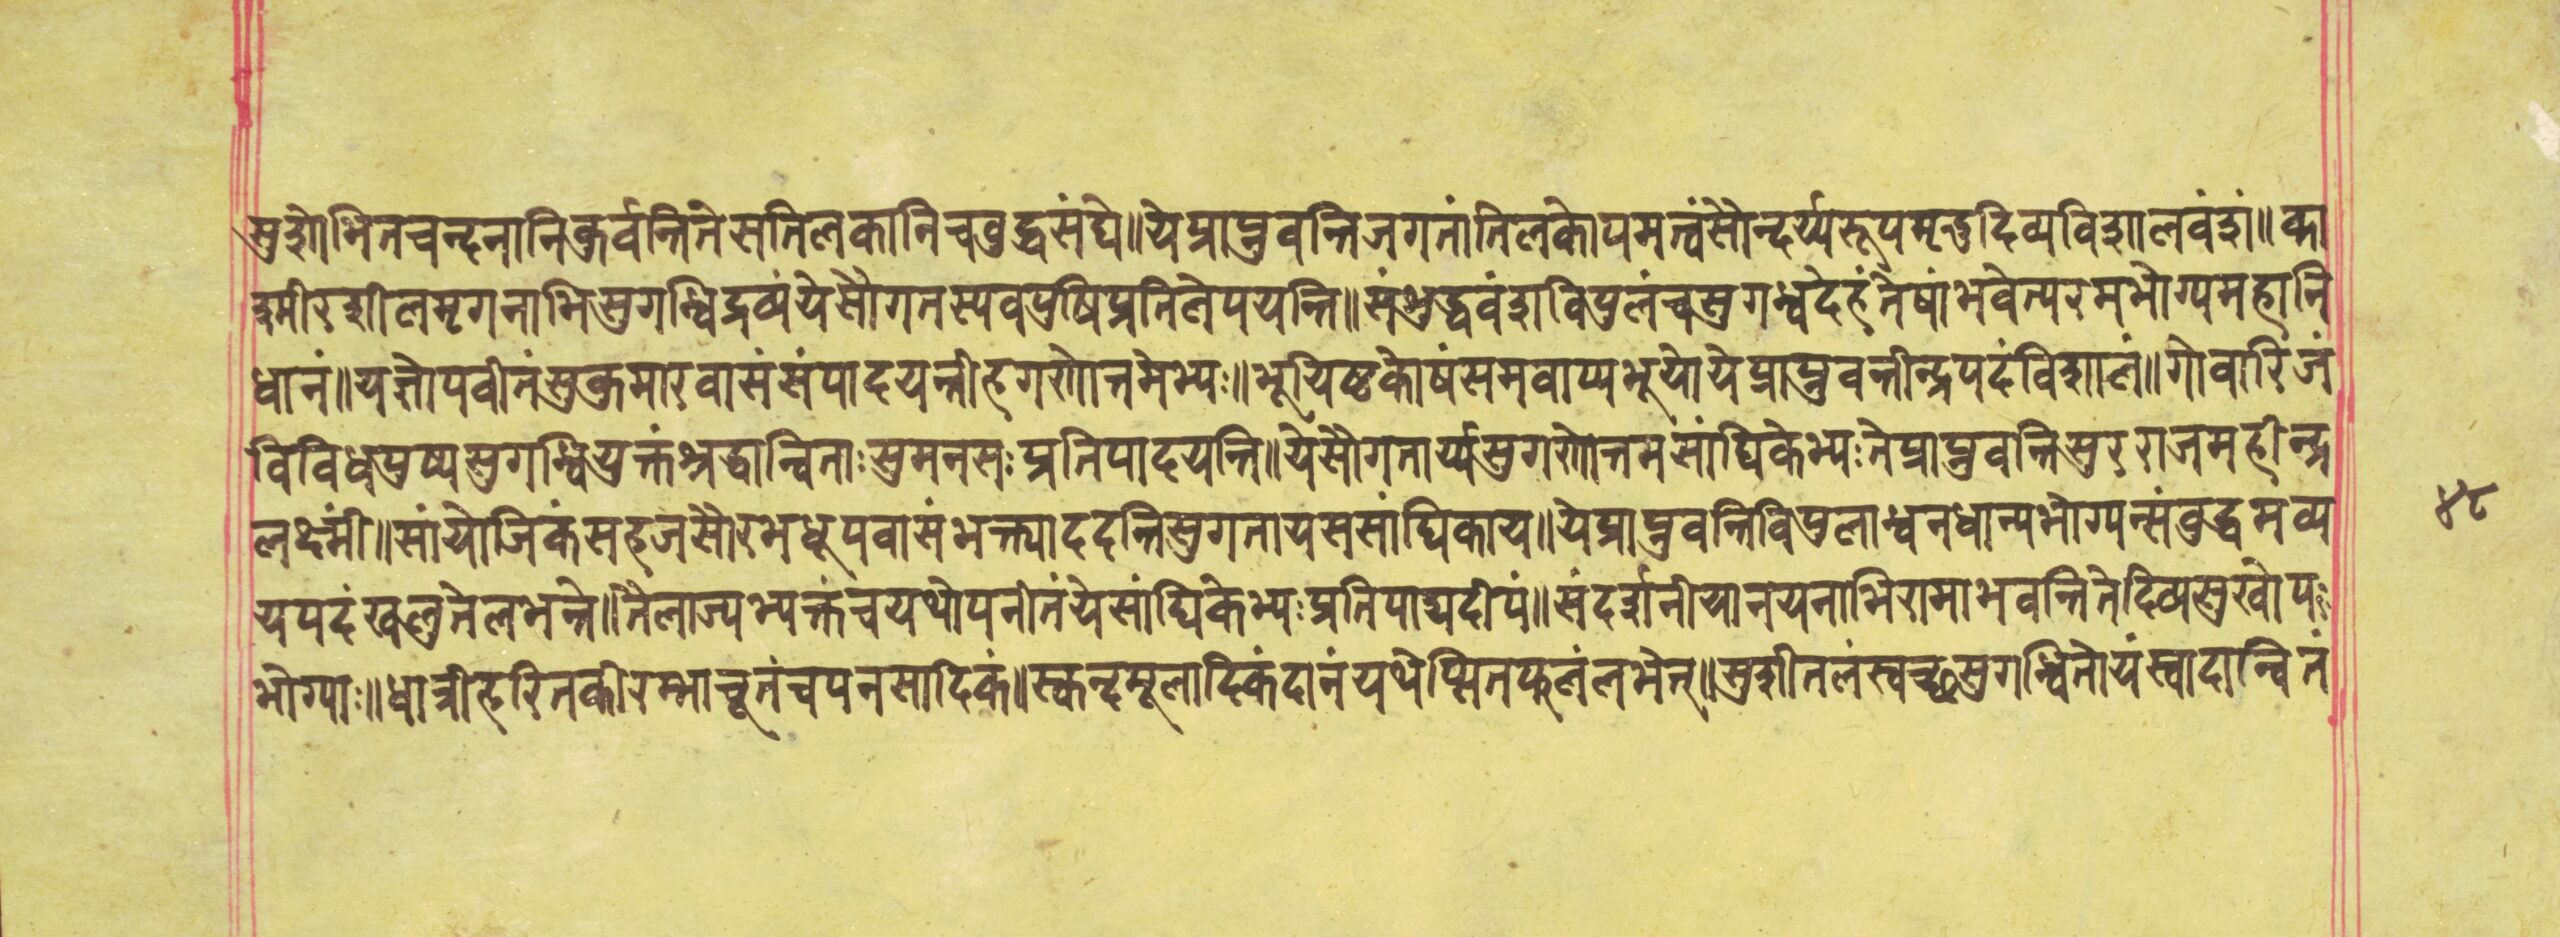 सुशोभितचन्दनानिकुर्वन्तितेसतिलकानिचवुद्धसंघे॥येप्राप्नुवन्तिजगतांतिलकोपमत्वंसौन्दर्य्यरूपमृदुदिव्यविशालवंशं॥का
श्मीरशीलमृगनाभिसुगन्धिद्रव्यंयेसौगतस्यवपुषिप्रतिलेपयन्ति॥संभुद्धवंशविपुलंचसुगन्धदेहंतेषांभवेत्परमभोग्यमहानि
धानं॥यज्ञोपवीतंसुकुमारवासंसंपादयन्तीहगणोत्तमेभ्यः॥भूयिष्ठकोषंसमवाप्यभूयोयेप्राप्नुवन्तीन्द्रपदंविशालं॥गोवारिजं
विविधपुष्पसुगन्धियुक्तंश्रद्धान्विताःसुमनसःप्रतिपादयन्ति॥येसौगतार्य्यसुगणोत्तमसांघिकेभ्यःतेप्राप्नुवन्तिसुरराजमहीन्द्र
लक्ष्मीं॥सांयोजिकंसहजसौरभधूपवासंभक्त्याददन्तिसुगतायससांघिकाय॥येप्राप्नुवन्तिविपुलान्धनधान्यभोग्यन्संवुद्धमव्य
यपदंखलुतेलभन्ते॥तैलाज्यभ्यक्तंचयथोपनीतंयेसांघिकेभ्यःप्रतिपाद्यदीपं॥संदर्शनीयानयनाभिरामाभवन्तितेदिव्यसुखोपः
भोग्याः॥धात्रीहरितकीरम्भाचूतंचपनसादिकं॥स्कन्दमूलादिकंदानंयथेप्सितफलंलभेत्॥सुशीतलंस्वच्छसुगन्धितोयंस्वादान्वितं
४८